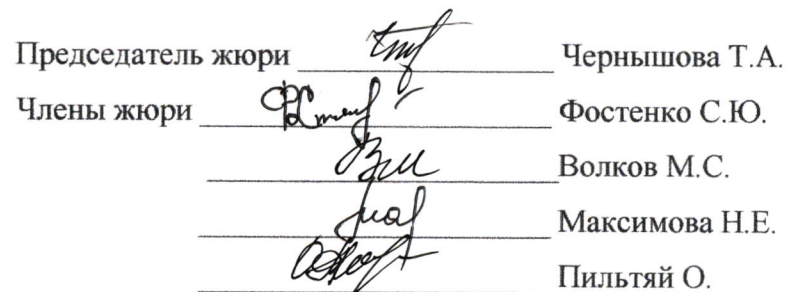 Председатель жюри Чернышова Т.А.
Члены жюри Фостенко С.Ю.
Волков М.С.
Максимова Н.Е.
Пильтяй О.